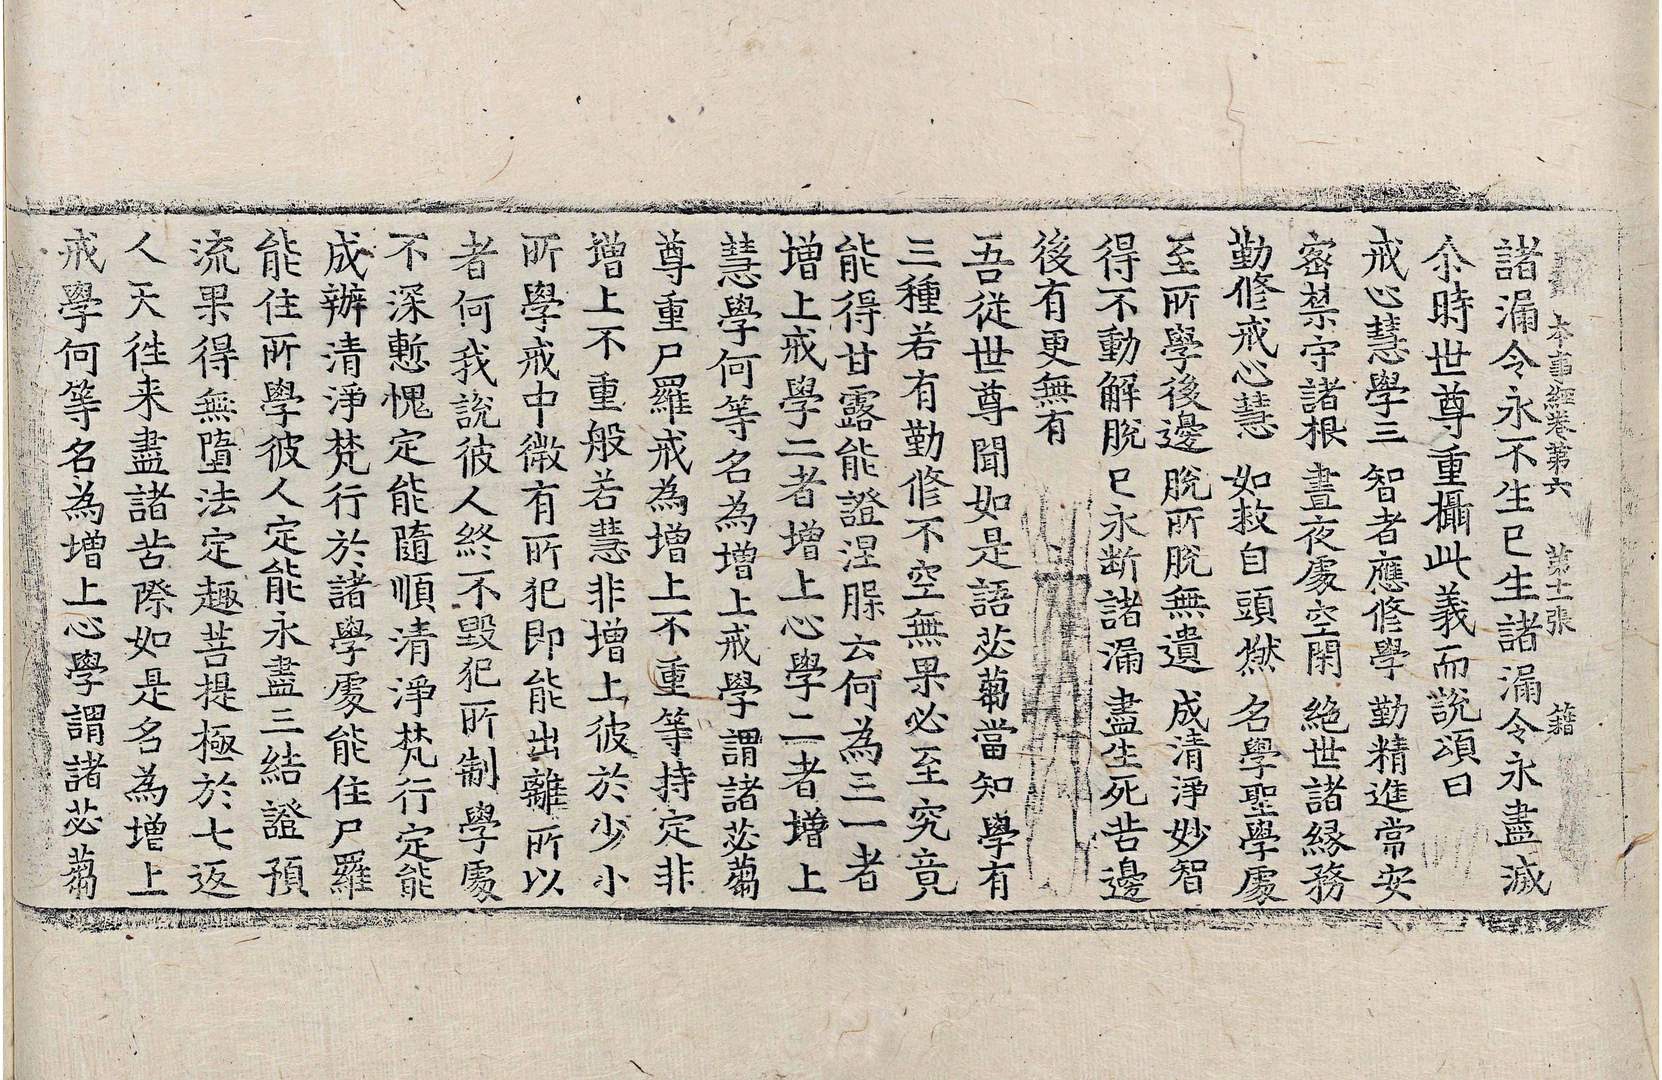 本事經卷第六 第十一張 籍
諸漏令永不生已生諸漏令永盡滅
尒時世尊重攝此義而說頌曰
戒心慧學三 智者應修學 勤精進常安
密禁守諸根 晝夜處空閑 絶世諸緣務
勤修戒心慧 如救自頭燃 名學聖學處
至所學後邊 脫所脫無遺 成清淨妙智
得不動解脫 已永斷諸漏 盡生死苦邊
後有更無有
吾從世尊聞如是語苾蒭當知學有
三種若有勤修不空無果必至究竟
能得甘露能證涅脲云何為三一者
增上戒學二者增上心學二者增上
慧學何等名為增上戒學謂諸苾蒭
尊重尸羅戒為增上不重等持定非
增上不重般若慧非增上彼於少小
所學戒中微有所犯即能出離所以
者何我說彼人終不毀犯所制學處
不深慙愧定能隨順清淨梵行定能
成辦清淨梵行於諸學處能住尸羅
能住所學彼人定能永盡三結證預
流果得無墮法定趣菩提極於七返
人天往来盡諸苦際如是名為增上
戒學何等名為增上心學謂諸苾蒭